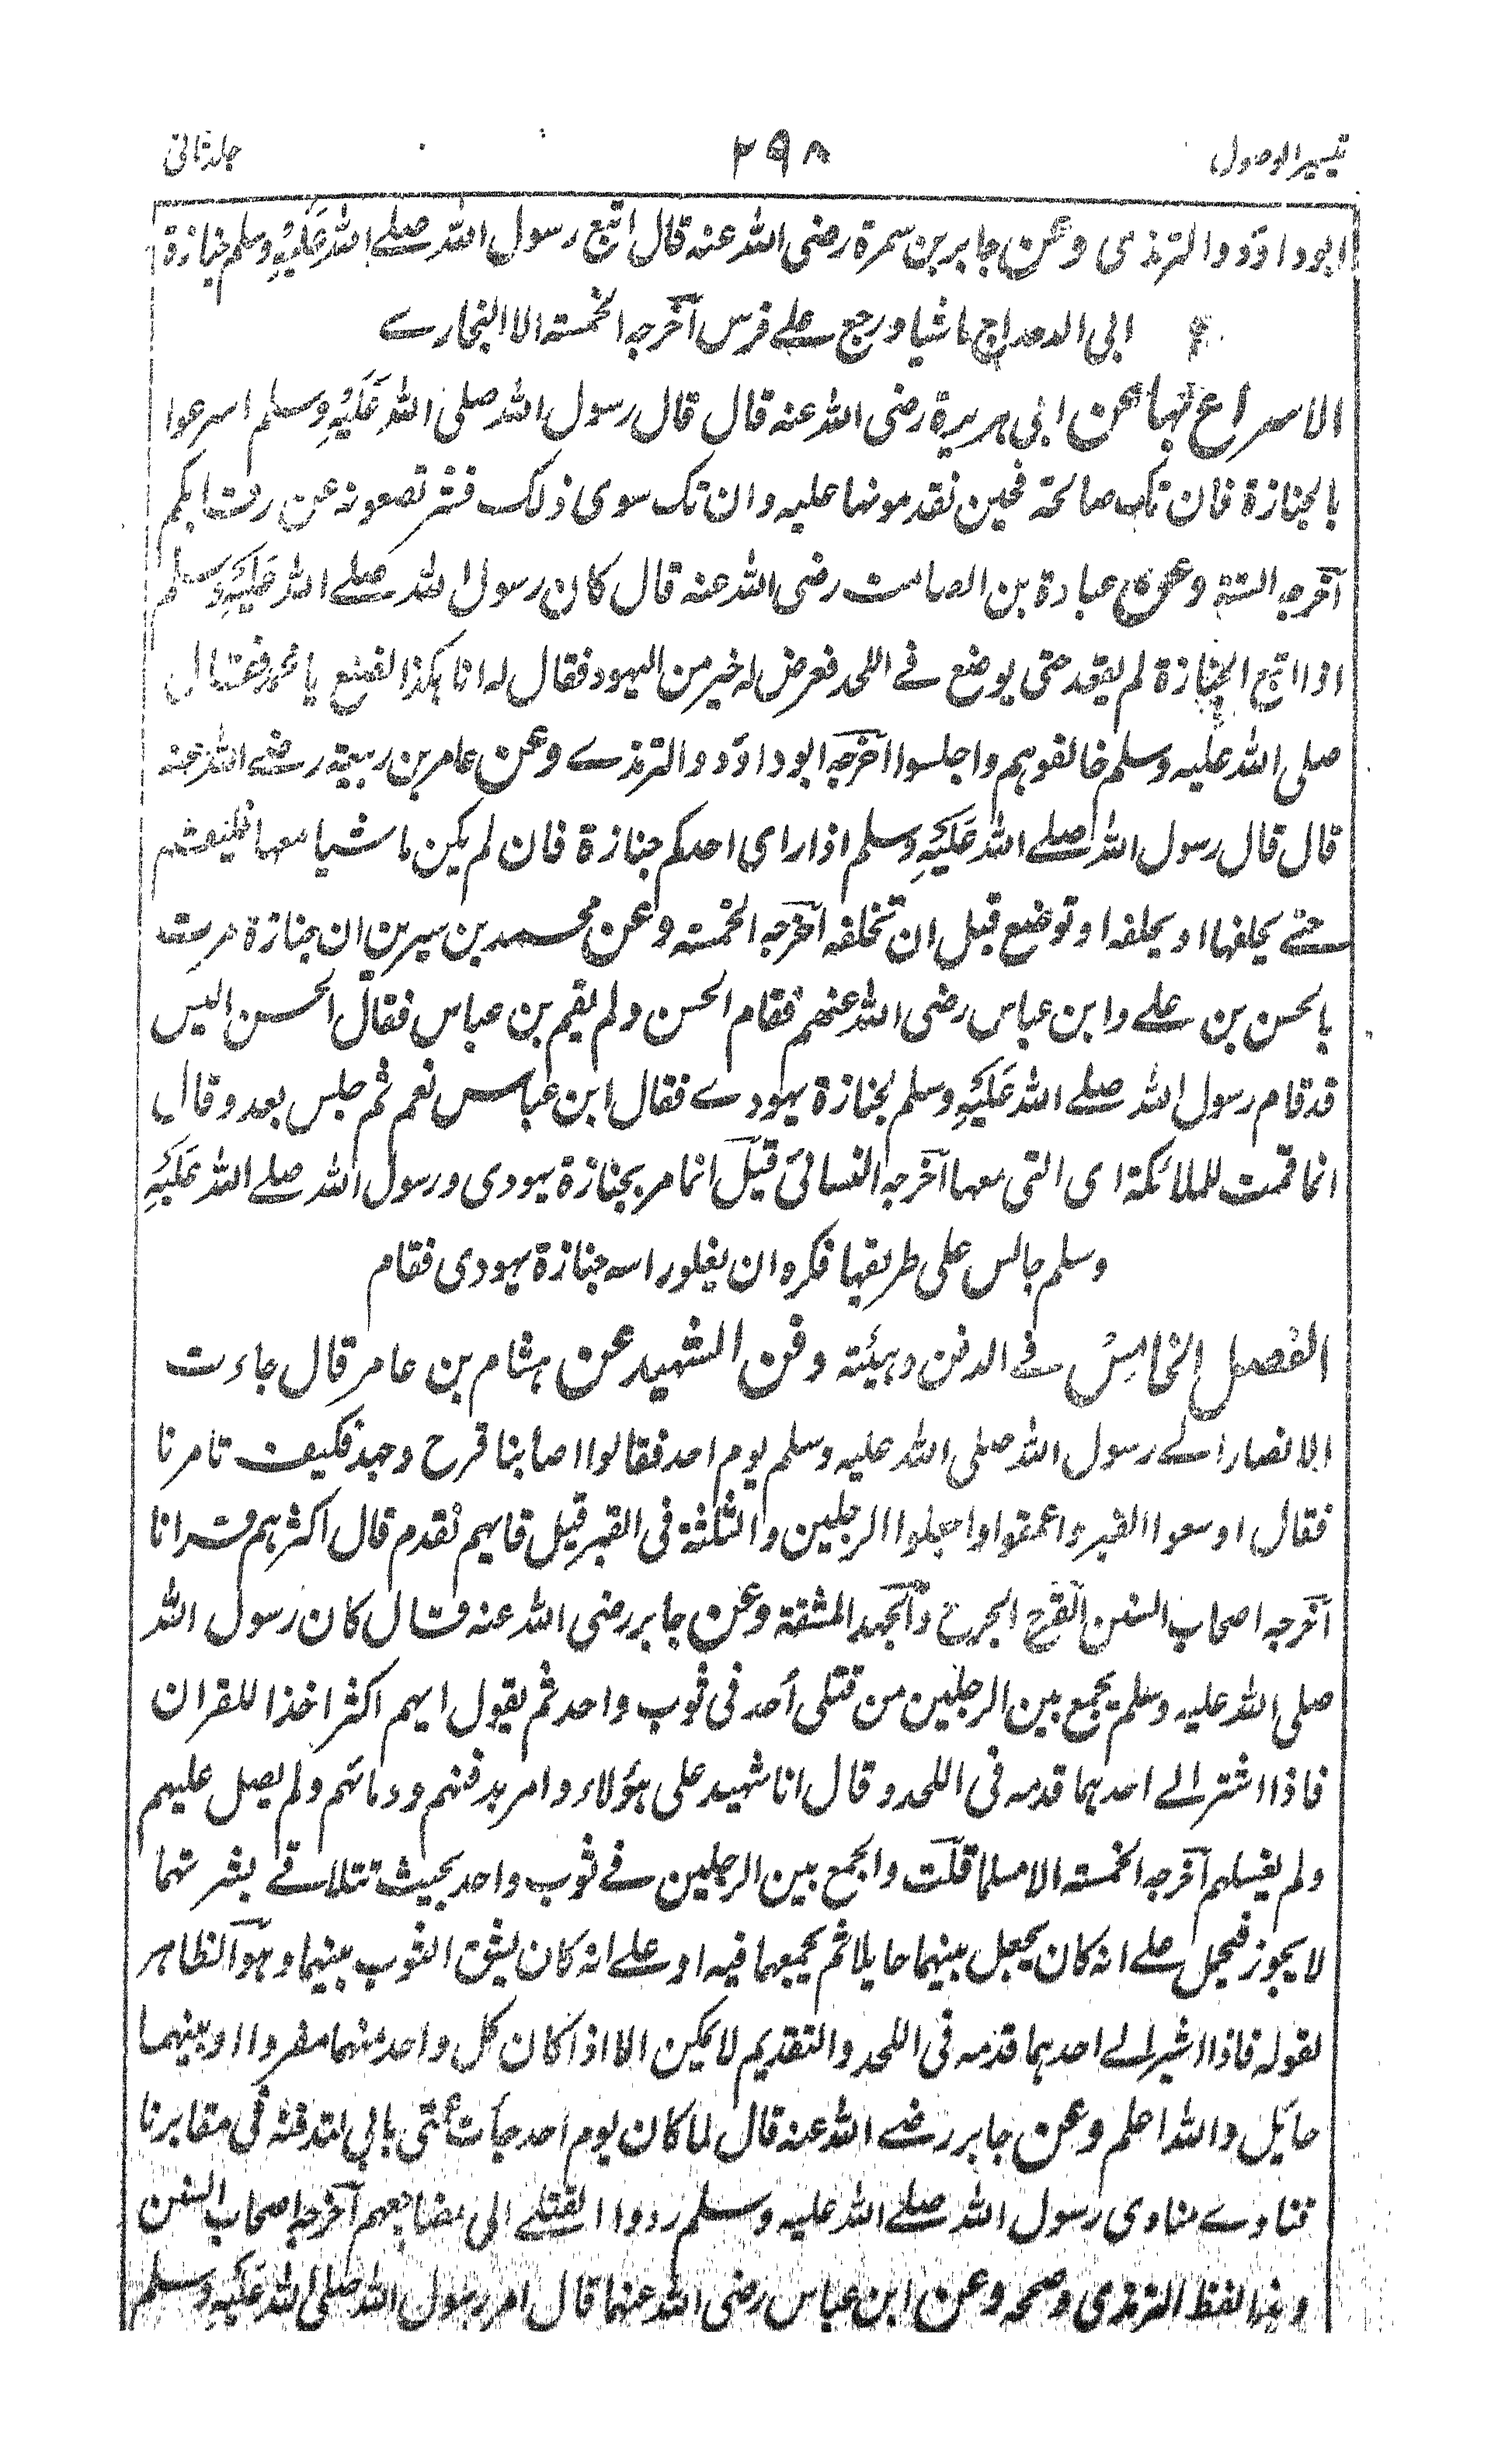 تيسير الوصول ٢٩٨ جلد ثانى
ابوداؤد والترمذى وعن جابر بن سمرة رضى الله عنه قال اتبع رسول الله صلے الله عَلَيْهِ وسلم جنازة
ابى الدحداح ماشيا ورجع علے فرس اخرجه الخمسته الا البخارے
الاسراع بها عن ابى هريرة رضى الله عنه قال قال رسول الله صلى الله عَلَيْهِ وسلم اسرعوا
بالجنازة فان تك صالحة فخير تقدمونها عليه وان تك سوى ذلك فشر تضعونه عن رقابكم
اخرجه الستة وعن عبادة بن الصامت رضى الله عنه قال كان رسول الله صلے الله عَلَيْهِ وسلم
اذا اتبع الجنازة لم يقعد حتى يوضع فے اللحد فعرض له خبر من اليهود فقال له انا هكذا نصنع يا محمد فقال
صلى الله عليه وسلم خالفوهم واجلسوا اخرجه ابوداؤد والترمذے وعن عامر بن ربيعة رضے الله عنه
قال قال رسول الله صلے الله عَلَيْهِ وسلم اذا راى احدكم جنازة فان لم يكن ماشيا معها فليقم
حتے يخلفها او يخلفه او توضع قبل ان تخلفه اخرجه الخمسته وعن محمد بن سيرين ان جنازة مرت
بالحسن بن علے وابن عباس رضى الله عنهم فقام الحسن ولم يقم بن عباس فقال الحسن اليس
قد قام رسول الله صلے الله عَلَيْهِ وسلم لجنازة يهودے فقال ابن عباس نعم ثم جلس بعد وقال
انما قمت للملائكة اى التى معها اخرجه النسائى قيل انما مر بجنازة يهودى ورسول الله صلے الله عَلَيْهِ
وسلم جالس على طريقها فكره ان يعلو راسه جنازة يهودى فقام
الفصل الخامس فے الدفن وهيئته دفن الشهيد عن هشام بن عامر قال جاءت
الانصار الے رسول الله صلى الله عليه وسلم يوم احد فقالوا اصابنا قرح وجهد فكيف تامرنا
فقال اوسعوا القبر واعمقوا واجعلوا الرجلين والثلثة فى القبر قيل فايهم نقدم قال اكثرهم قرانا
اخرجه اصحاب السنن القرح الجرح والجهد المشقة وعن جابر رضى الله عنه قال كان رسول الله
صلى الله عليه وسلم يجمع بين الرجلين من قتلى أحد فى ثوب واحد ثم يقول ايهم اكثر اخذا للقران
فاذا اشير الے احدهما قدمه فى اللحد وقال انا شهيد على هؤلاء وامر بدفنهم ودمائهم ولم يصل عليهم
ولم يغسلهم اخرجه الخمسته الا مسلما قلت والجمع بين الرجلين فے ثوب واحد بحيث تتلاقے بشرتهما
لا يجوز فيحمل علے انه كان يجعل بينهما حايلا ثم يجمعهما فيه او علے انه كان يشق الثوب بينهما وهو الظاهر
لقوله فاذا اشير الے احدهما قدمه فى اللحد والتقديم لا يمكن الا اذا كان كل واحد منهما مفردا او بينهما
حائل والله اعلم وعن جابر رضے الله عنه قال لما كان يوم احد جأت عمتى بابى لتدفنه فى مقابرنا
فنادے منادى رسول الله صلے الله عليه وسلم ردوا القتلے الى مضاجعهم اخرجه اصحاب السنن
وهذا لفظ الترمذى وصححه وعن ابن عباس رضى الله عنهما قال امر رسول الله صلى الله عَلَيْهِ وسلم